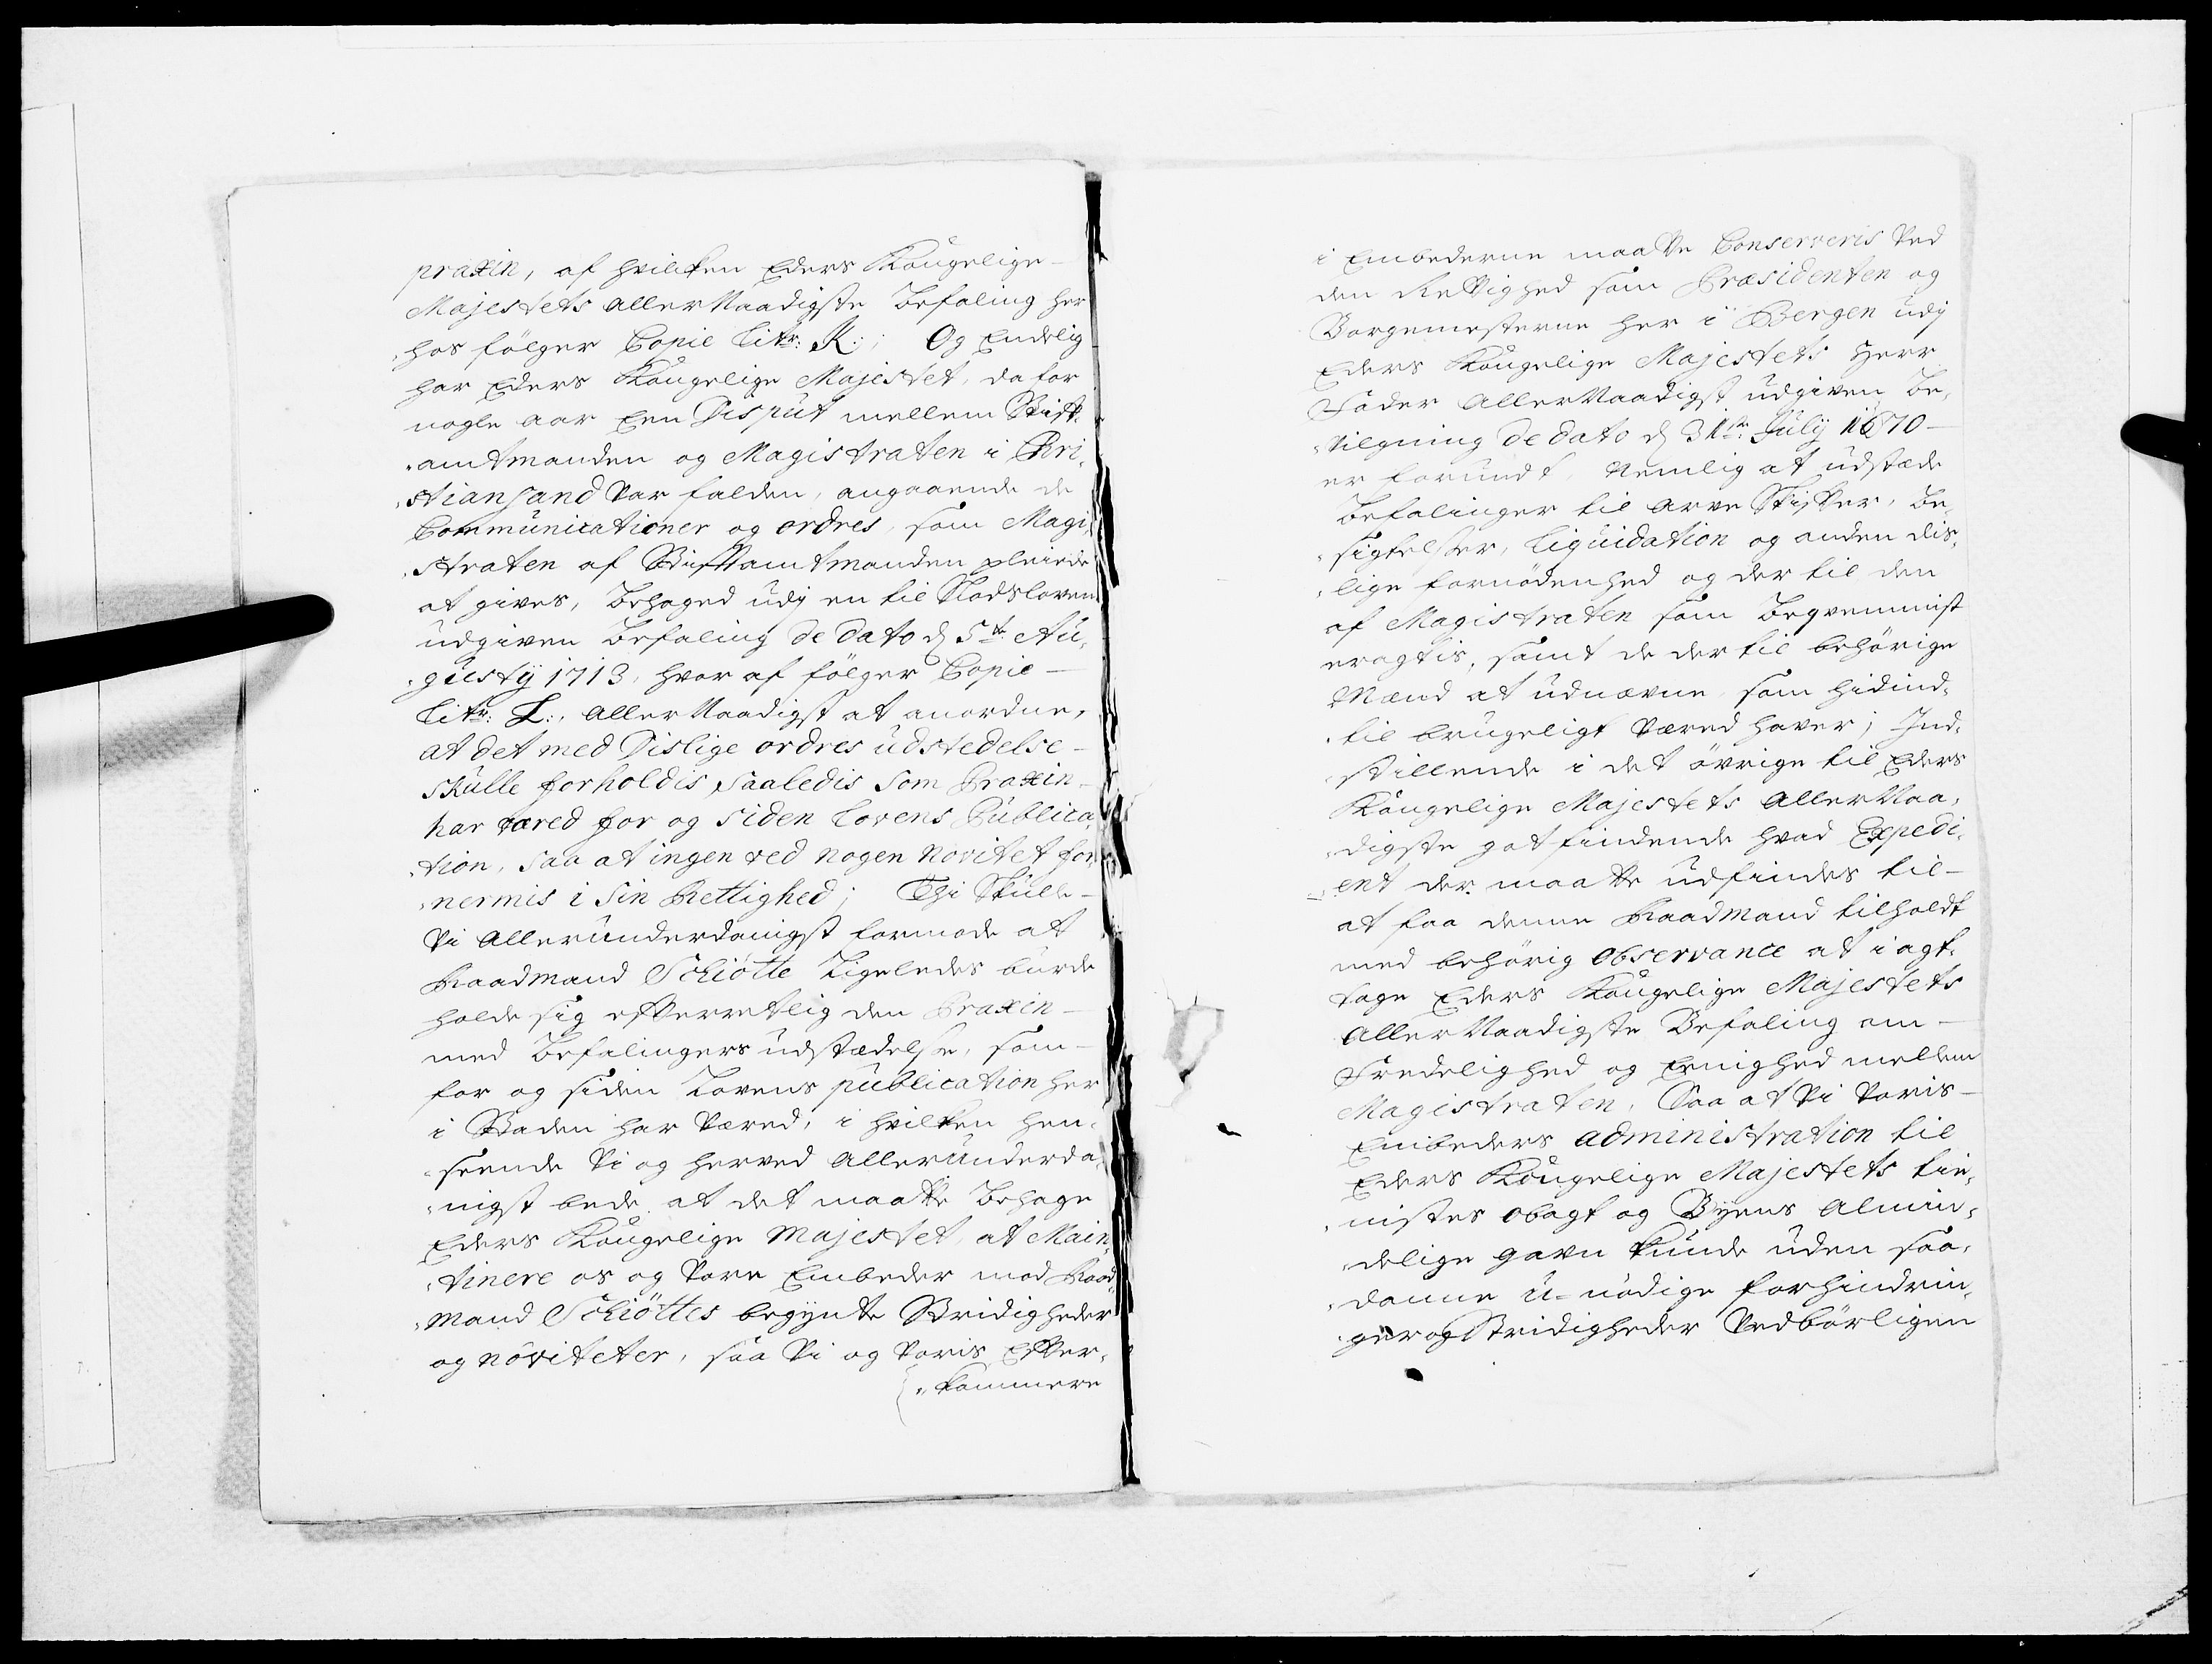 praxin, af hvilken Eders Kongelige
Majestets Allernaadigste Befaling her
hos følger Copie Litr: K:; Og Endelig
har Eders Kongelige Majestet, da for
nogle aar Een Disput mellem Stift-
amtmanden og Magistraten i Chri-
stiansand var falden, angaaende de
Communicationer og ordres, som Magi-
straten af Stiftamtmanden pleiede
at gives, Behaged udj en til Slodsloven
udgiven Befaling de dato d 5te Au-
gusty 1713, hvor af følger Copie
Litr: L:, Allernaadigst at anordne,
at det med Dislige ordres udstedelse
skulle forholdis saaledis som Praxin
har vered for og siden Lovens Publica-
tion, saa at ingen ved nogen Novitet for-
nermis i sin Rettighed; Thi Skulle
Vi Allerunderdanigst formode at
Raadmand Schiøtte Ligeledes burde
holde sig efterretlig den Praxin
med Befalingers udstædelse, som
for og siden Lovens publication her
i Staden har Vered, i hvilken hen-
seende Vi og herved Allerunderda-
nigst bede at det maatte Behage
Eders Kongelige Majestet at Main-
tinere os og Vore Embeder mod Raad-
mand Schiøttes begynte Stridigheder
og noviteter, saa Vi og Voris Efter-
kommere
i Embederne maatte Conserveris Ved
den Rettighed som Præsidenten og
Borgemesterne her i Bergen udj
Eders Kongelige Majestets Herr
Fader Allernaadigst udgiven Be-
vilgning de dato d 31te July 1670
er forundt, Nemlig at udstæde
Befalinger til Arve Skifter, Be-
sigtelser, Liquidation og anden dis-
lige fornødenhed og der til den
af Magistraten som Beqvemmist
eragtis, samt de der til behørige
Mænd at udnævne som hidind-
til brugeligt Væred haver; Ind-
stillende i det øvrige til Eders
Kongelige Majestets Allernaa-
digste got findende hvad Expedi-
ent der maatte udfindes til
at faa denne Raadmand tilholdt
med behørig observance at i agt-
tage Eders Kongelige Majestets
Allernaadigste Befaling om
Fredelighed og Eenighed mellem
Magistraten, Saa at Vi Voris
Embeders administration til
Eders Kongelige Majestets tie-
nistes obagt og Byens Almin-
delige gavn kunde uden saa-
danne u-nødige forhindrin-
ger og Stridigheder Vedbørligen